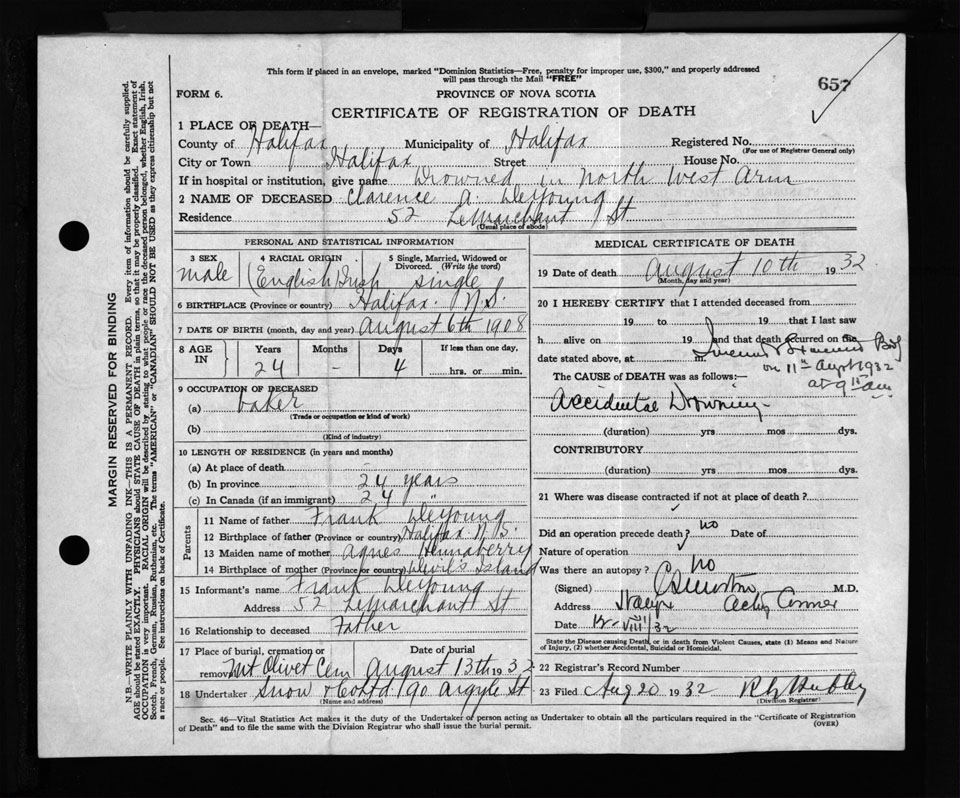 This form if placed in an envelope, marked "Dominion Statistics—Free, penalty for improper use, $300," and properly addressed
will pass through the Mail "FREE"
657
FORM 6. PROVINCE OF NOVA SCOTIA
CERTIFICATE OF REGISTRATION OF DEATH
1 PLACE OF DEATH—
County of Halifax Municipality of Halifax Registered No.
(For use of Registrar General only)
City or Town Halifax Street House No.
If in hospital or institution, give name Drowned in North West Arm
2 NAME OF DECEASED Clarence A. DeYoung
Residence 52 LeMarchant St
(Usual place of abode)
PERSONAL AND STATISTICAL INFORMATION
3 SEX 4 RACIAL ORIGIN 5 Single, Married, Widowed or
Divorced. (Write the word)
male (English) Irish single
6 BIRTHPLACE (Province or country) Halifax. N.S.
7 DATE OF BIRTH (month, day and year) August 6th 1908
8 AGE IN Years Months Days If less than one day.
24 - 4 hrs. or min.
9 OCCUPATION OF DECEASED
(a) baker
(Trade or occupation or kind of work)
(b)
(Kind of industry)
10 LENGTH OF RESIDENCE (in years and months)
(a) At place of death -
(b) In province 24 years
(c) In Canada (if an immigrant) 24 "
Parents
11 Name of father Frank DeYoung
12 Birthplace of father (Province or country) Halifax N.S.
13 Maiden name of mother Agnes Hennaberry
14 Birthplace of mother (Province or country) Devil's Island
15 Informant's name Frank DeYoung
Address 52 LeMarchant St
16 Relationship to deceased Father
17 Place of burial, cremation or removal Date of burial
Mt Olivet Cem August 13th 1932
18 Undertaker Snow & Co Ltd. 90 Argyle St
(Name and address)
MEDICAL CERTIFICATE OF DEATH
19 Date of death August 10th 1932
(Month, day and year)
20 I HEREBY CERTIFY that I attended deceased from
19 to 19 that I last saw
h alive on 19 and that death occurred on the
date stated above, at m.
on 11th Augt 1932
at 9 15 am
The CAUSE of DEATH was as follows:—
Accidental Drowning
(duration) yrs mos dys.
CONTRIBUTORY
(duration) yrs mos dys.
21 Where was disease contracted if not at place of death?
Did an operation precede death? no Date of
Nature of operation
Was there an autopsy? no
(Signed) M.D.
Address Halifax Acting Coroner
Date VIII/32
State the Disease causing Death, or in death from Violent Causes, state (1) Means and Nature
of Injury, (2) whether Accidental, Suicidal or Homicidal.
22 Registrar's Record Number
23 Filed Aug 20 1932
(Division Registrar)
Sec. 46—Vital Statistics Act makes it the duty of the Undertaker or person acting as Undertaker to obtain all the particulars required in the "Certificate of Registration
of Death" and to file the same with the Division Registrar who shall issue the burial permit. (OVER)
MARGIN RESERVED FOR BINDING
N.B.—WRITE PLAINLY WITH UNFADING INK—THIS IS A PERMANENT RECORD. Every item of information should be carefully supplied.
AGE should be stated EXACTLY. PHYSICIANS should STATE CAUSE OF DEATH in plain terms, so that it may be properly classified. Exact statement of
OCCUPATION is very important. RACIAL ORIGIN will be described by stating to what people or race the deceased person belonged, whether English, Irish,
Scotch, French, German, Russian, Ruthenian, etc. The terms "AMERICAN" or "CANADIAN" SHOULD NOT BE USED as they express citizenship but not
a race or people. See instructions on back of Certificate.